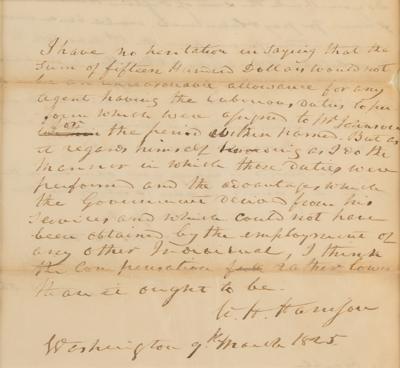 I have no hesitation in saying that the
sum of fifteen Hundred Dollars would not
be an unreasonable allowance for any
agent having the laborious duties to per
form which were assigned to Mr Johnson
for the period within named. But as
it regards himself knowing as I do the
manner in which those duties were
performed and the advantages which
the Government derived from his
services and which could not have
been obtained by the employment of
any other Individual, I think
the Compensation rather lower
than it ought to be.
W. H. Harrison
Washington 9th March 1825.